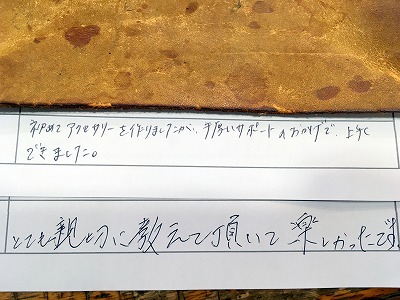 初めてアクセサリーを作りましたが、手厚いサポートのおかげで、上手く
できました。
とても親切に教えて頂いて楽しかったです